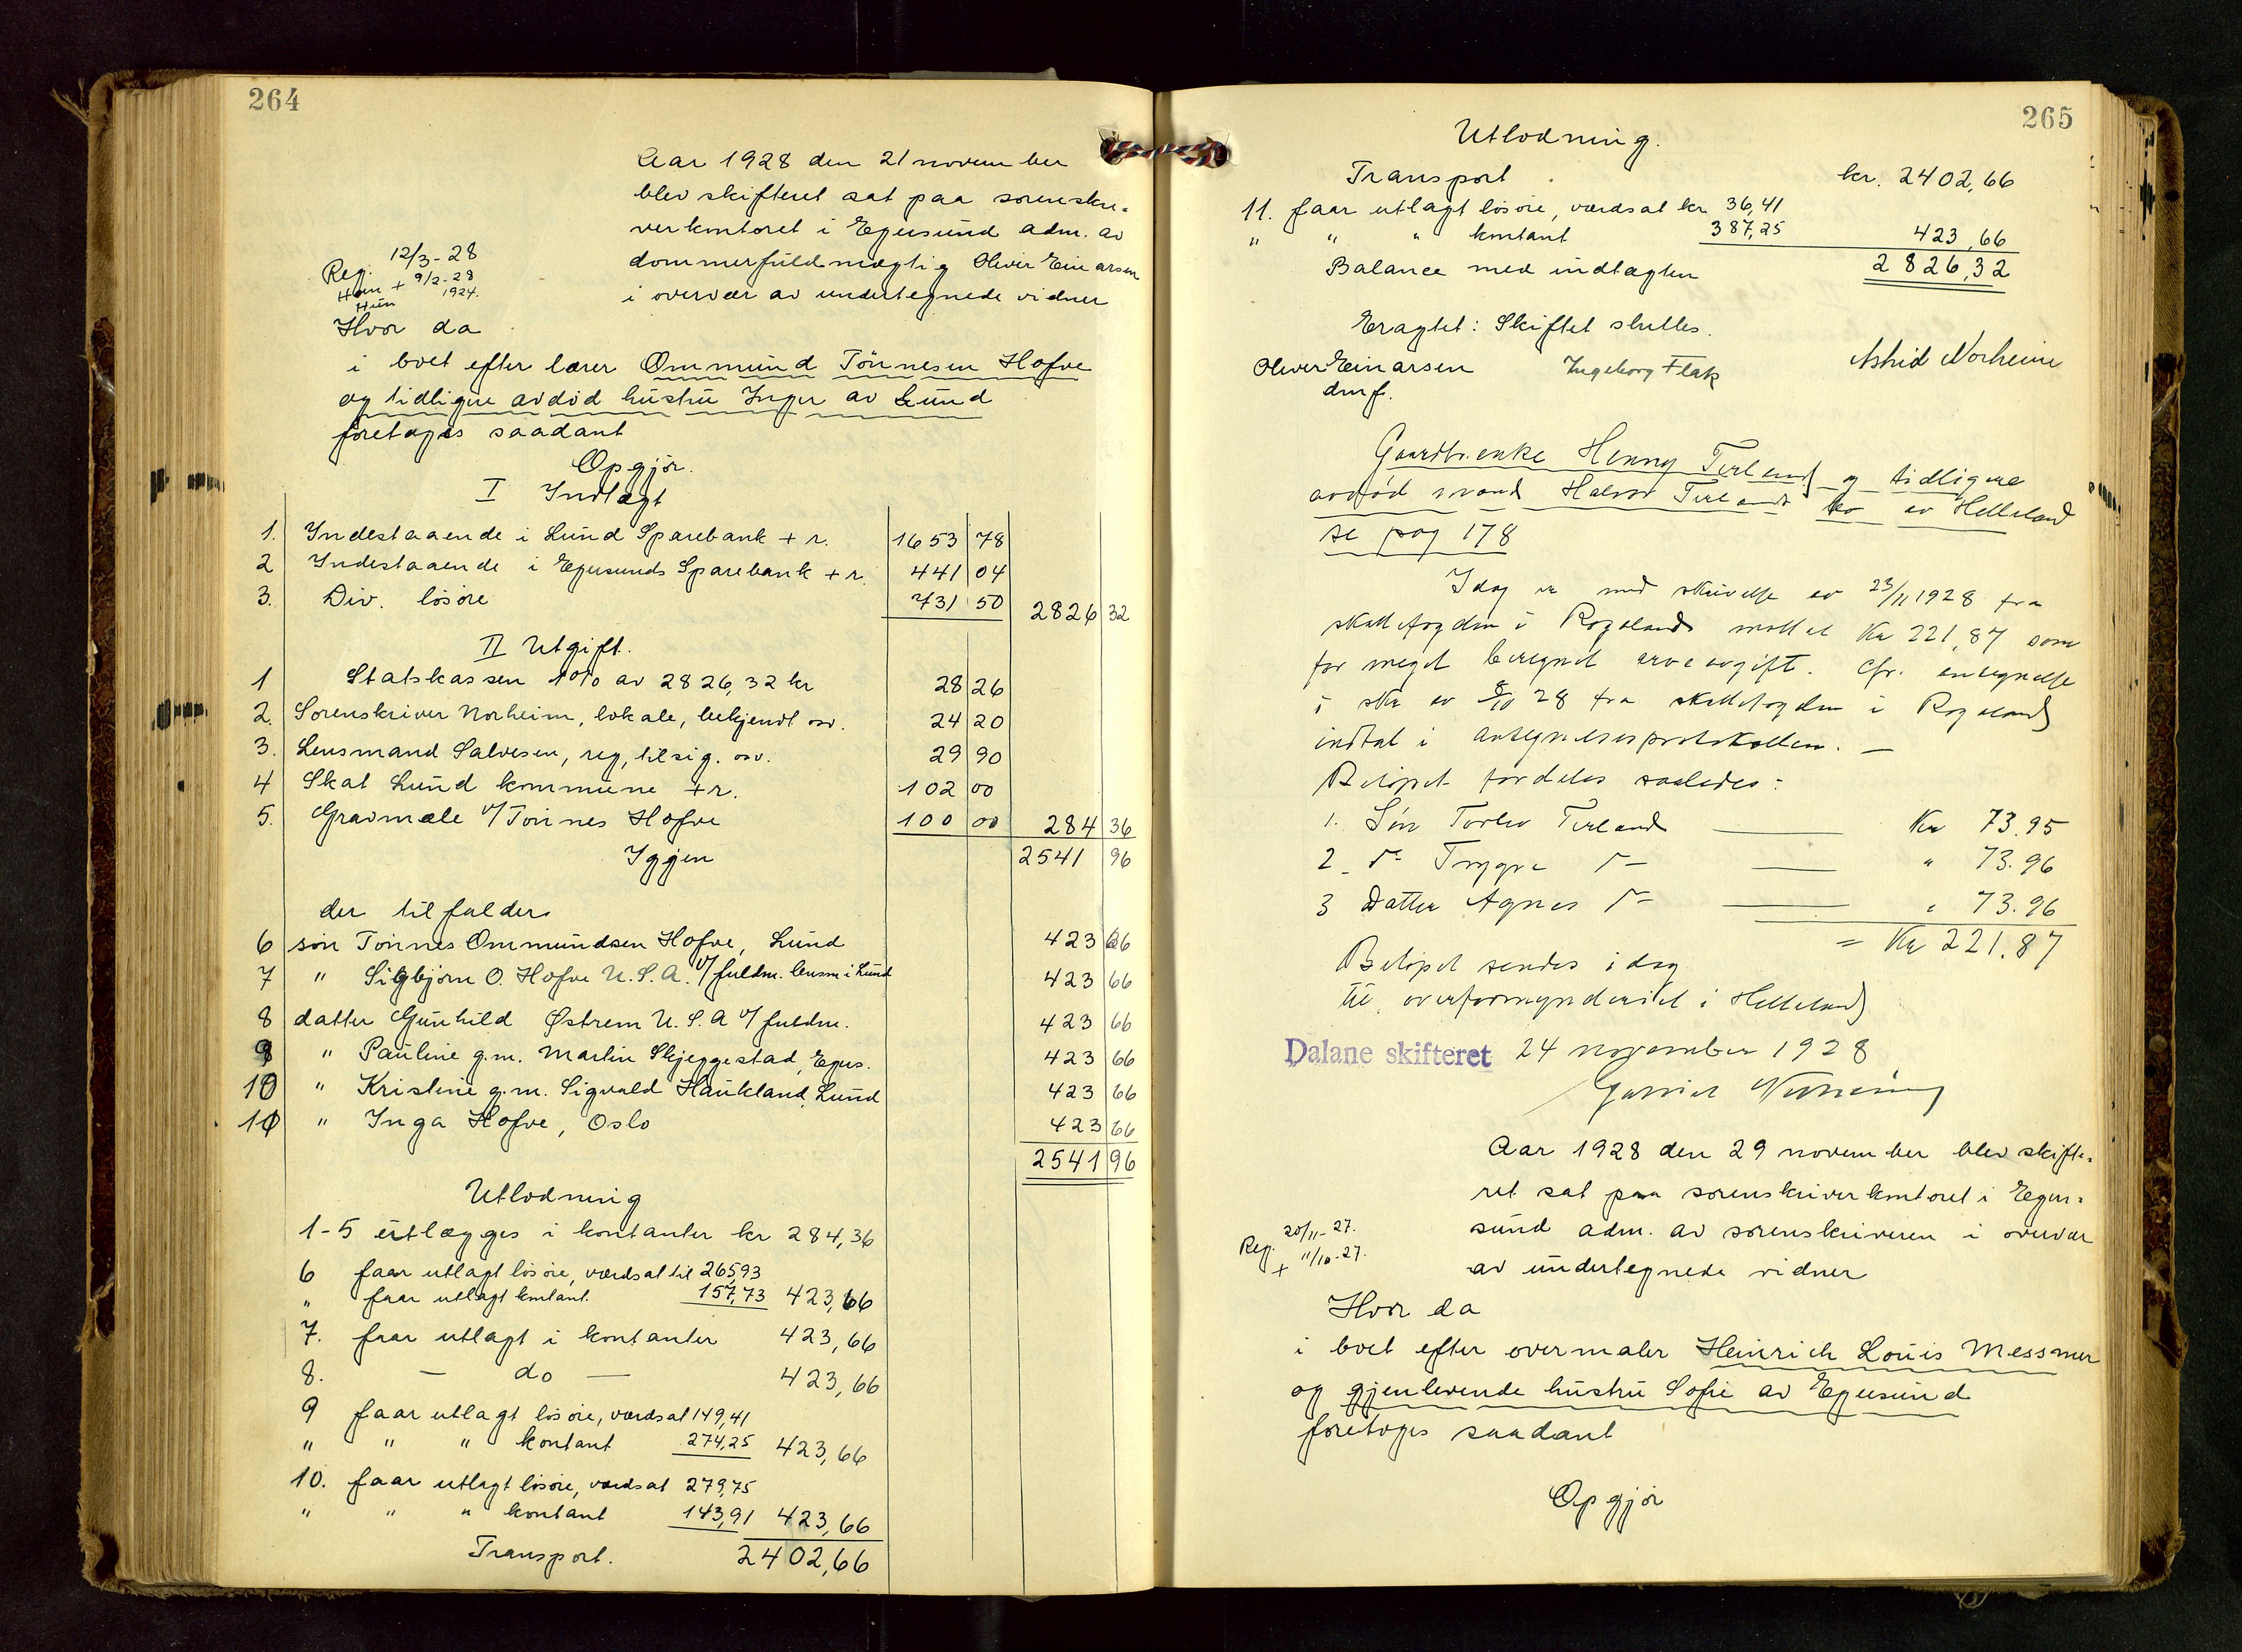 264
Aar 1928 den 21 november
blev skifteret sat paa sorenskri-
verkontoret i Egersund adm. av
dommerfuldmægtig Oliver Einarsen
i overvær av undertegnede vidner
Reg. 12/3-28
Han + 9/2-28
Hun 1924.
Hvor da
i boet efter lærer Ommund Tönnesen Hofve
og tidligere avdöd hustru Inger av Lund
foretoges saadant
Opgjör.
I Indtægt
1. Indestaaende i Lund Sparebank + r. 1653 78
2 Indestaaende i Egersunds Sparebank + r. 441 04
3. Div. lösöre 731 50 2826 32
II Utgift.
1 Statskassen 1% av 2826,32 kr 28 26
2. Sorenskriver Norheim, lokale, bekjendt osv. 24 20
3. Lensmand Salvesen, reg, tilsig. osv. 29 90
4 Skat Lund kommune + r. 102 00
5. Gravmæle v/ Tönnes Hofve 100 00 284 36
Igjen 2541 96
der tilfalder
6 sön Tönnes Ommundsen Hofve, Lund 423 66
7 " Sigbjörn O. Hofve U.S.A. v/ fuldm. lensm i Lund 423 66
8 datter Gunhild Østrem U.S.A v/ fuldm. 423 66
9 " Pauline g.m. Martin Skjeggestad, Egers. 423 66
10 " Kristine g.m. Sigvald Haukland, Lund 423 66
11 " Inga Hofve, Oslo 423 66
2541 96
Utlodning
1-5 utlægges i kontanter kr 284,36
6 faar utlagt lösöre, værdsat til 265,93
" faar utlagt kontant. 157,73 423,66
7. faar utlagt i kontanter 423,66
8. — do — 423,66
9 faar utlagt lösöre, værdsat 149,41
" " " kontant 274,25 423,66
10. faar utlagt lösöre, værdsat 279,75
" " " kontant 143,91 423,66
Transport. 2402,66
265
Utlodning.
Transport. kr. 2402,66
11. faar utlagt lösöre, værdsat kr 36,41
" " " kontant 387,25 423,66
Balance med indtægten 2826,32
Eragtet: Skiftet sluttes.
Oliver Einarsen Ingeborg Flak Astrid Norheim
dmf.
Gaardbr.enke Henny Terland og tidligere
avdöd mand Halvor Terlands bo av Helleland
se pag 178
Idag er med skrivelse av 23/11 1928 fra
skattefogden i Rogaland mottat Kr 221,87 som
for meget beregnet arveavgift. Cfr. antegnelse
i skr av 8/10 28 fra skattefogden i Rogaland
indtat i antegnelsesprotokollen. —
Belöpet fordeles saaledes:
1. Sön Torlev Terland — Kr 73.95
2 d° Trygve d° — " 73.96
3 Datter Agnes d° — " 73.96
= Kr 221.87
Belöpet sendes idag
til overformynderiet i Helleland
Dalane skifteret 24 november 1928
Aar 1928 den 29 november blev skifte-
ret sat paa sorenskriverkontoret i Eger-
sund adm. av sorenskriveren i overvær
av undertegnede vidner
Reg. 20/11-27.
+ 11/10-27.
Hvor da
i boet efter overmaler Heinrich Louis Messmer
og gjenlevende hustru Sofie av Egersund
foretoges saadant
Opgjör